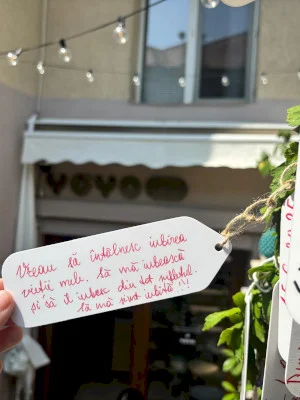 Vreau să întâlnesc iubirea
vieții mele. Să mă iubească
și să îl iubesc din tot sufletul.
Să mă simt iubită!!!